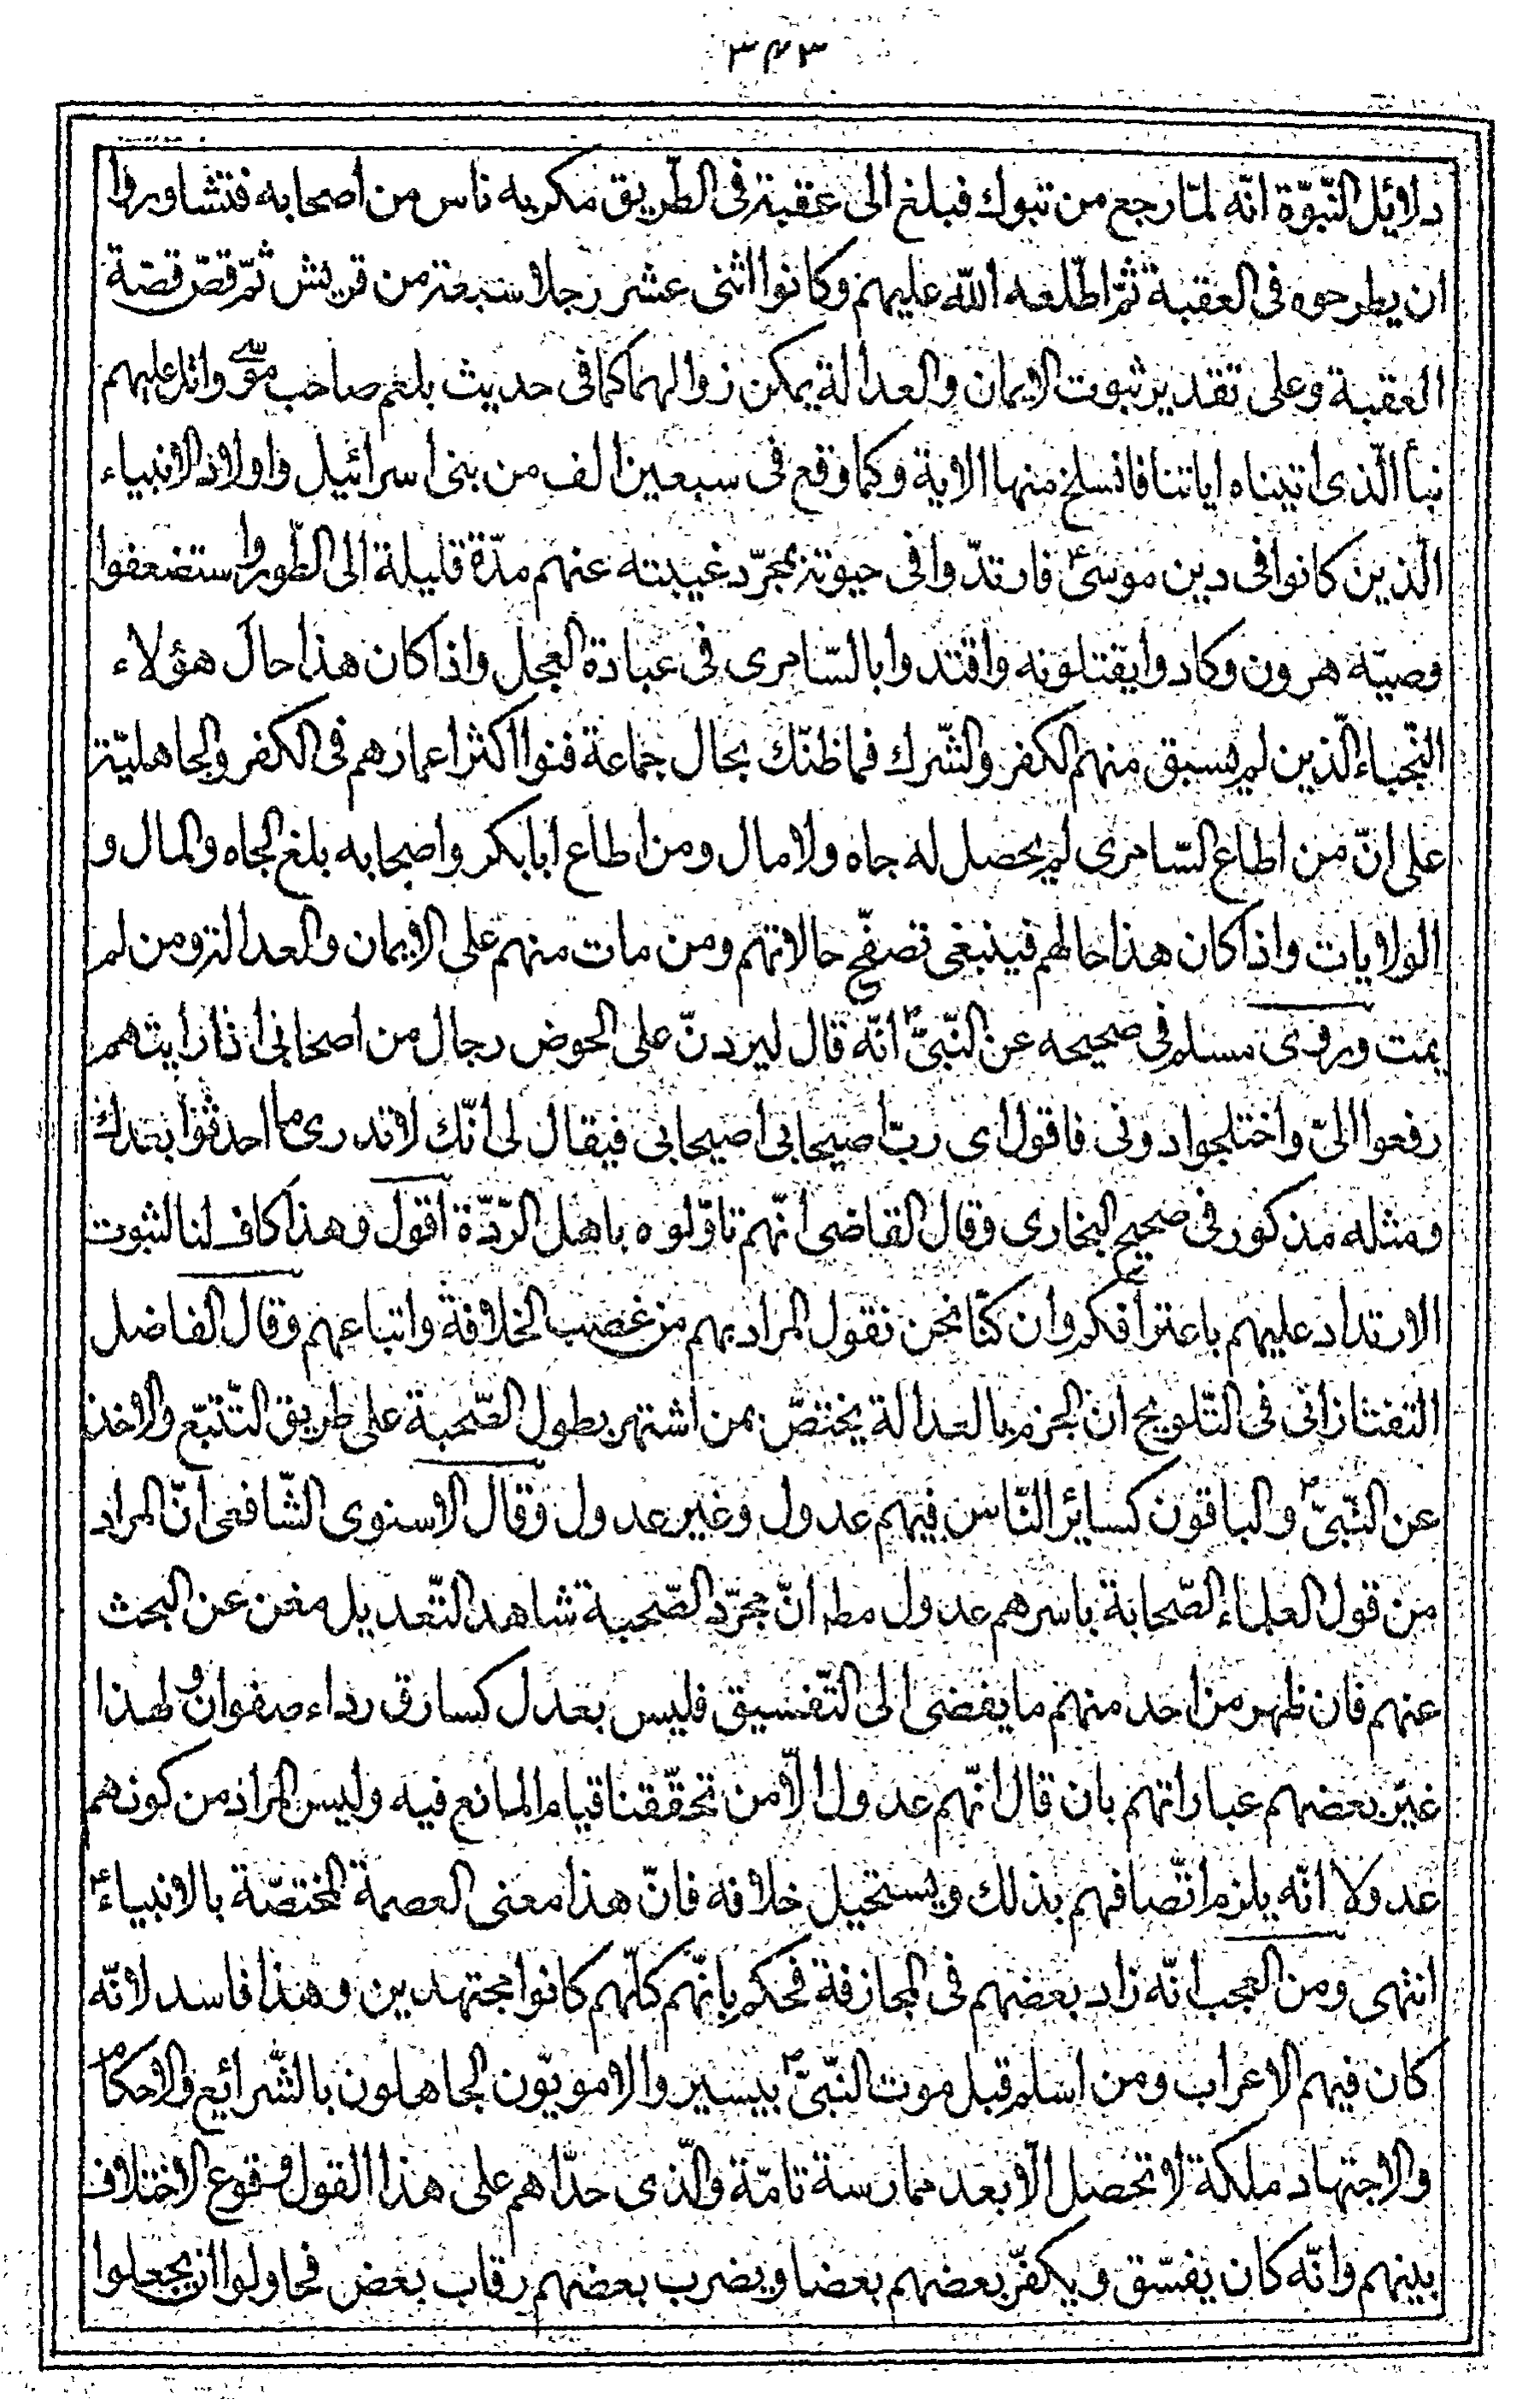 ٣٤٣
دلائل النّبوّة انّه لمّا رجع من تبوك فبلغ الى عقبة فى الطّريق مكر به ناس من اصحابه فتشاوروا
ان يطرحوه فى العقبة ثمّ اطّلعه اللّه عليهم وكانوا اثنى عشر رجلا سبعة من قريش ثمّ قصّ قصّة
العقبة وعلى تقدير ثبوت الايمان والعدالة يمكن زوالهما كما فى حديث بلعم صاحب موسى واتل عليهم
نبأ الّذى اتيناه اياتنا فانسلخ منها الاية وكما وقع فى سبعين الف من بنى اسرائيل واولاد الانبياء
الّذين كانوا فى دين موسىؑ فارتدّوا فى حيوته بمجرّد غيبته عنهم مدّة قليلة الى الطّور واستضعفوا
وصيّه هرون وكادوا يقتلونه واقتدوا بالسّامرى فى عبادة العجل واذا كان هذا حال هؤلاء
النّجباء الّذين لم يسبق منهم الكفر والشّرك فما ظنّك بحال جماعة فنوا اكثر اعمارهم فى الكفر والجاهليّة
على انّ من اطاع السّامرى لم يحصل له جاه ولا مال ومن اطاع ابابكر واصحابه بلغ الجاه والمال و
الولايات واذا كان هذا حالهم فينبغى تصفّح حالاتهم ومن مات منهم على الايمان والعدالة ومن لم
يمت وروى مسلم فى صحيحه عن النّبىّؐ انّه قال ليردنّ على الحوض رجال من اصحابى اذا رايتهم
رفعوا الىّ واختلجوا دونى فاقول اى ربّ اصيحابى اصيحابى فيقال لى انّك لا تدرى ما احدثوا بعدك
ومثله مذكور فى صحيح البخارى وقال القاضى انّهم تاوّلوه باهل الرّدّة اقول وهذا كاف لنا لثبوت
الارتداد عليهم باعترافكم وان كنّا نحن نقول المراد بهم من غصب الخلافة واتباعهم وقال الفاضل
التفتازانى فى التّلويح ان الجزم بالعدالة يختصّ بمن اشتهر بطول الصّحبة على طريق التّتبّع والاخذ
عن النّبىّؐ والباقون كسائر النّاس فيهم عدول وغير عدول وقال الاسنوى الشّافعى انّ المراد
من قول العلماء الصّحابة باسرهم عدول مط انّ مجرّد الصّحبة شاهد التّعديل مغن عن البحث
عنهم فان ظهر من احد منهم ما يفضى الى التّفسيق فليس بعدل كسارق رداء صفوان ولهذا
غيّر بعضهم عباراتهم بان قال انّهم عدول الّا من تحقّقنا قيام المانع فيه وليس المراد من كونهم
عدولا انّه يلزم اتّصافهم بذلك ويستحيل خلافه فانّ هذا معنى العصمة المختصّة بالانبياءؑ
انتهى ومن العجب انّه زاد بعضهم فى المجازفة فحكم بانّهم كلّهم كانوا مجتهدين وهذا فاسد لانّه
كان فيهم الاعراب ومن اسلم قبل موت النّبىّؐ بيسير والامويّون الجاهلون بالشّرائع والاحكام
والاجتهاد ملكة لا تحصل الّا بعد ممارسة تامّة والّذى حدّاهم على هذا القول وقوع الاختلاف
بينهم وانّه كان يفسّق ويكفّر بعضهم بعضا ويضرب بعضهم رقاب بعض فحاولوا ان يجعلوا